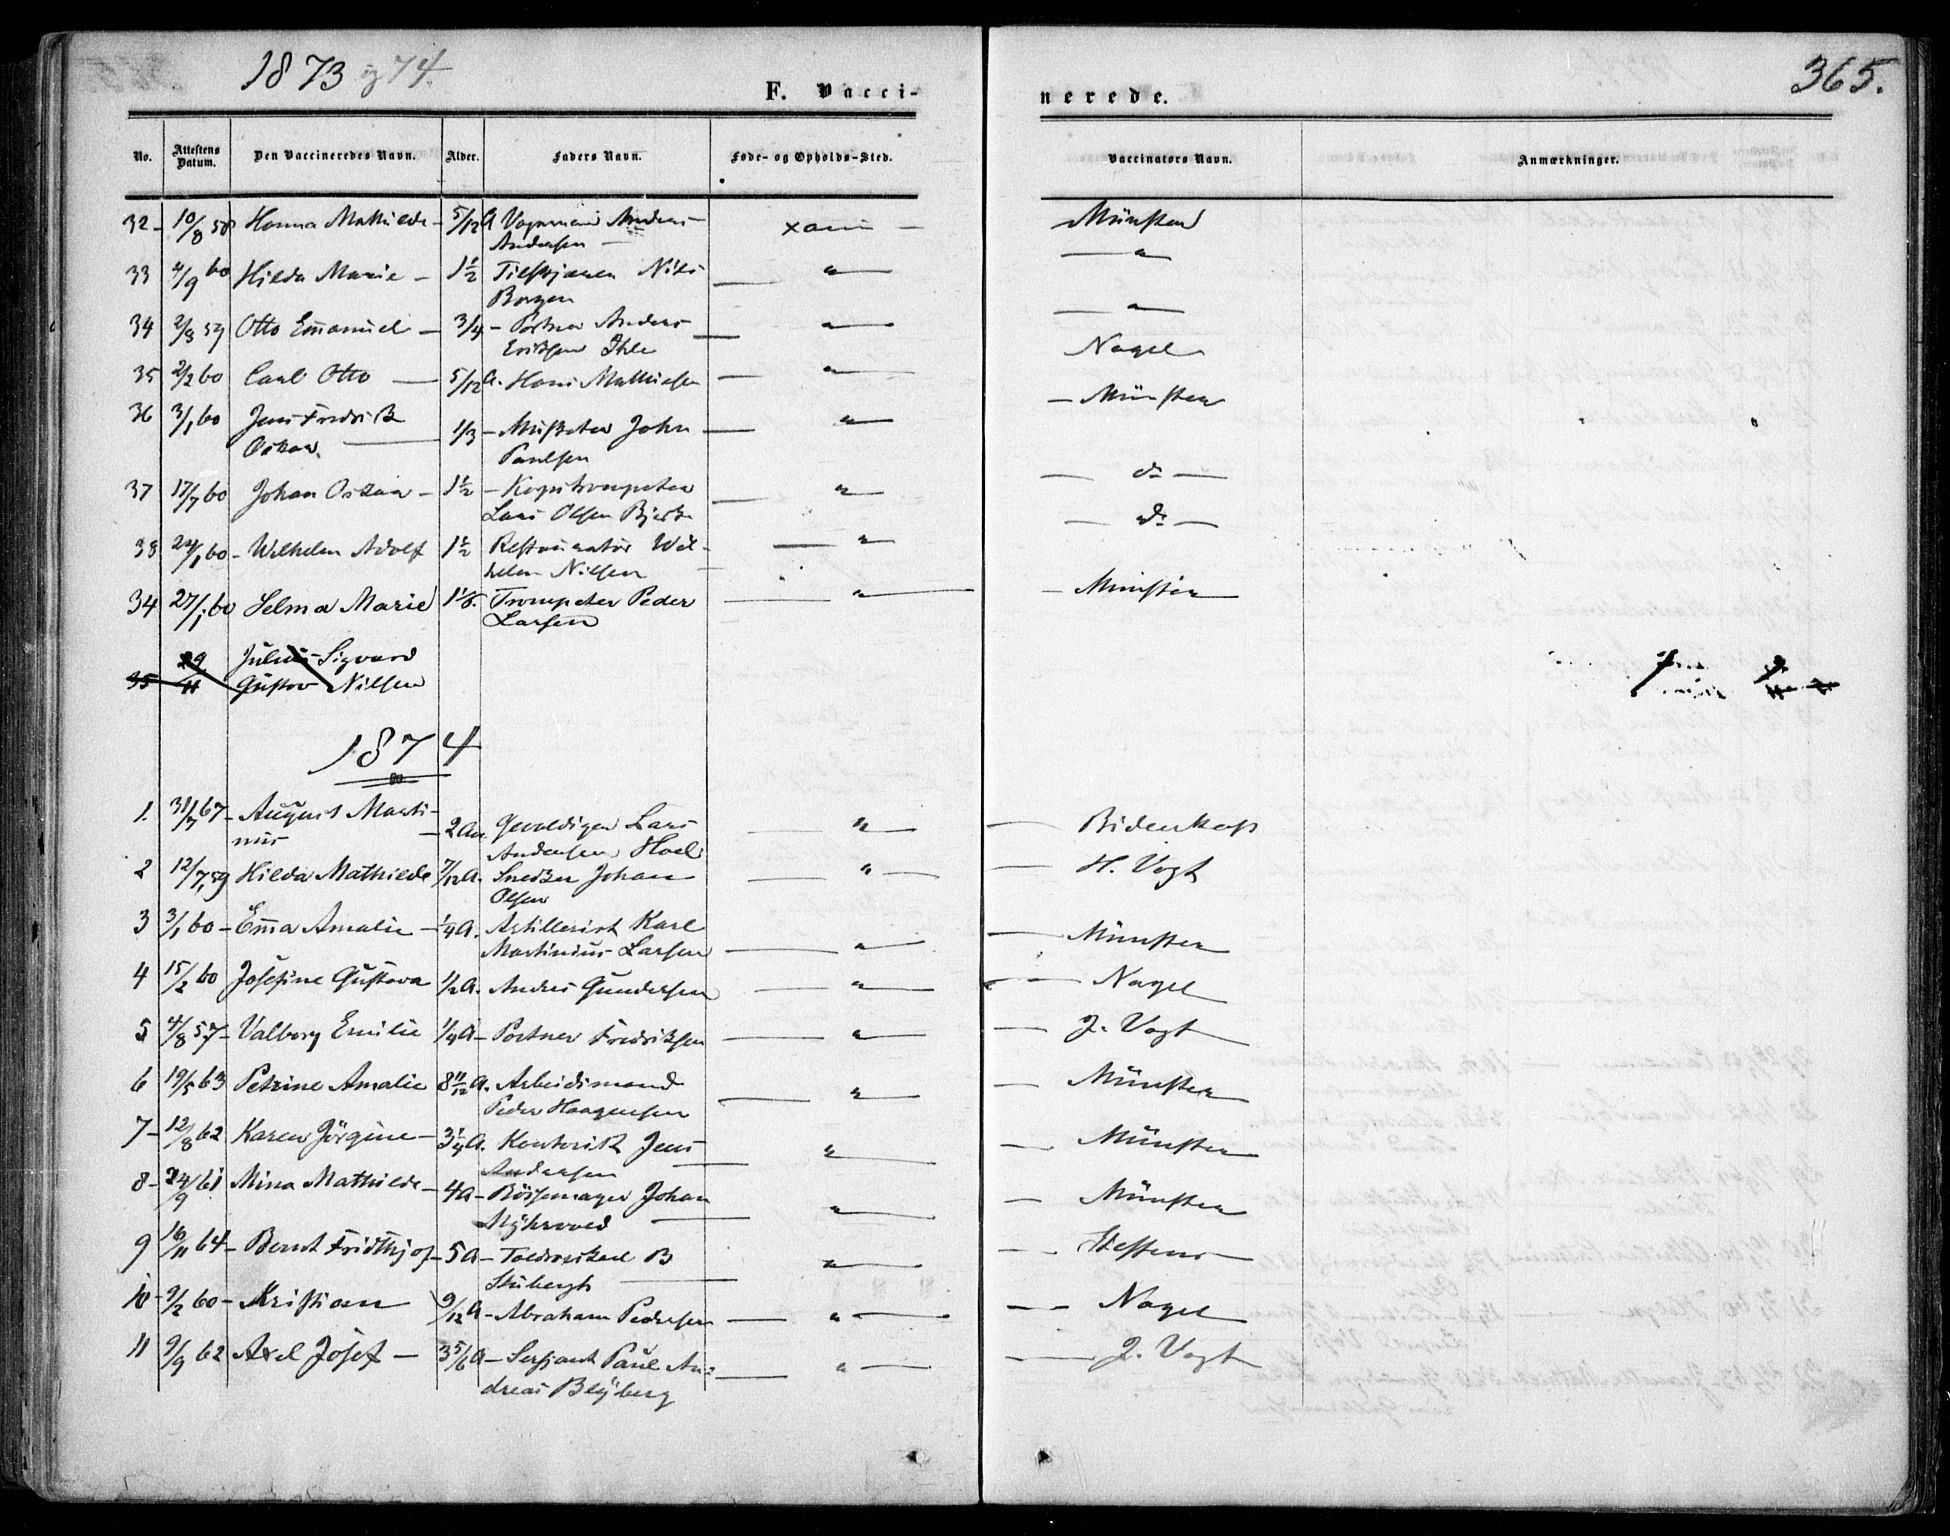 1873 og 74.
365.
F. Vacci-
nerede.
No.
Attestens Datum.
Den Vaccineredes Navn.
Alder.
Faders Navn.
Føde- og Opholds-Sted.
Vaccinators Navn.
Anmærkninger.
32 - 10/8 58 Hanna Mathilde - 5/12 A Anders Münster
Andersen -
33 4/9 60 Hilda Marie - 1 1/2 Nils " "
Borgen
34 2/8 59 Otto Emanuel - 3/4 - Portner Anders " "
Eriksen Ihle
35 2/2 60 Carl Otto - 5/12 A. Hans Mathiesen - " Nagel
36 3/1 60 Jens Fredrik 1/3 - Musketer John - " - Münster
Oskar. Paulsen
37 17/7 60 Johan Oskar - 1 1/2 - " - do -
Lars Olsen Bjerke
38 24/1 60 - Wilhelm Adolf 1 1/2 Restauratør Wil- " - do -
helm Nilsen
34 27/1 60 Selma Marie Trompeter Peder " - Münster
Larsen
Julius Sigvard
35 29/11 Gustav Nilsen
1874
1. 31/7 67 - August Marti- 2 Aar. Gevaldiger Lars " - Bidenkap
nus Andersen Hoel
2 12/7 59 Hilda Mathilde 7/12 A. Snedker Johan " - H. Vogt
Olsen
3 3/1 60 - Emma Amalie - 1/4 A. Artillerist Karl " - Münster
Martinius Larsen
4 15/2 60 Josefine Gustava 1/2 A. Andres Gundersen " - Nagel
5 4/8 57 - Valborg Emilie 1/4 A - Portner Fredriksen " - J. Vogt
6 19/5 63 Petrine Amalie 8 11/12 A. Arbeidsmand " - Münster
Peder Haagensen
7 - 12/8 62 Karen Jörgine - 3 1/4 A. Kontorist Jens " - Münster
Andersen
8 - 24/9 61 Mina Mathilde - 4 A - Bössemager Johan " - Münster
Myhrvold
9 16/11 64 - Bernt Fridthjof - 5 A - B " - Steffens
Stubergh
10 - 9/2 60 - Kristian 9/12 A - Abraham Pedersen - " - Nagel
11 9/9 62 Axel Josef - 3 5/6 A - Sersjant Paul An- " - J. Vogt
dreas Blyberg